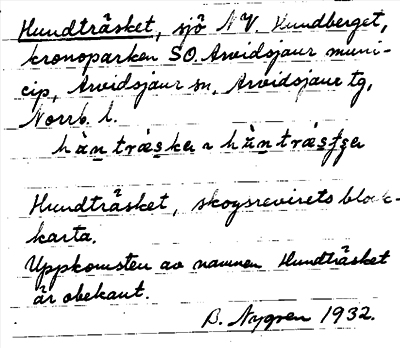 Hundträsket, sjö N.V. Hundberget,
kronoparken SO. Arvidsjaur muni-
cip, Arvidsjaur sn, Arvidsjaur tg,
Norrb. l.
hùn tráska ~ hùn
Hundträsket, skogsrevirets block-
karta.
Uppkomsten av namnen Hundträsket
är obekant.
B. Nygren 1932.